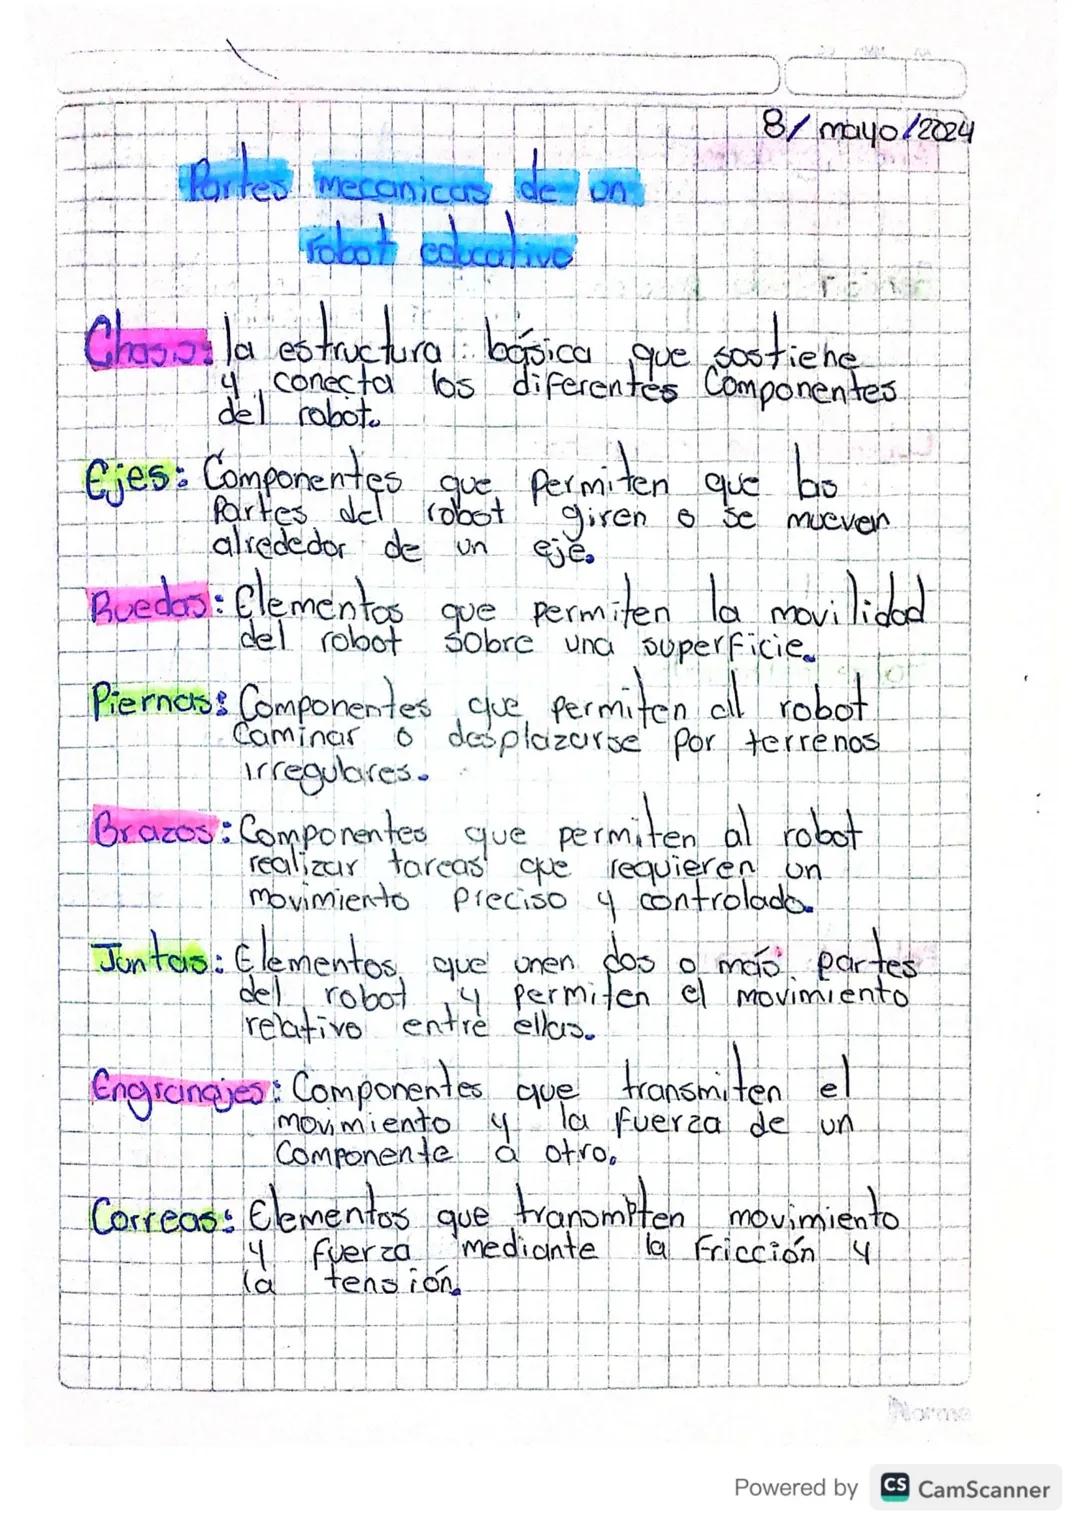 8/ mayo/2024
Partes mecanicas de un
robot educativo
Chasis: la estructura básica que sostiene
y conecta los diferentes Componentes
del robot.
Ejes: Componentes que Permiten que las
Partes del robot giren o se mueven
alrededor de un eje.
Ruedas: Elementos que permiten la movilidad
del robot sobre una superficie.
Piernas: Componentes que permiten al robot
Caminar o desplazarse por terrenos
irregulares.
Brazos: Componentes que permiten al robot
realizar tareas que requieren un
movimiento preciso y controlado.
Juntas: Elementos que unen dos o más partes
del robot y permiten el movimiento
relativo entre ellas.
Engranajes: Componentes que transmiten el
movimiento y la fuerza de un
Componente a otro.
Correas: Elementos que transmiten movimiento
y fuerza mediante la fricción y
la tensión.
Norma
Powered by CS CamScanner